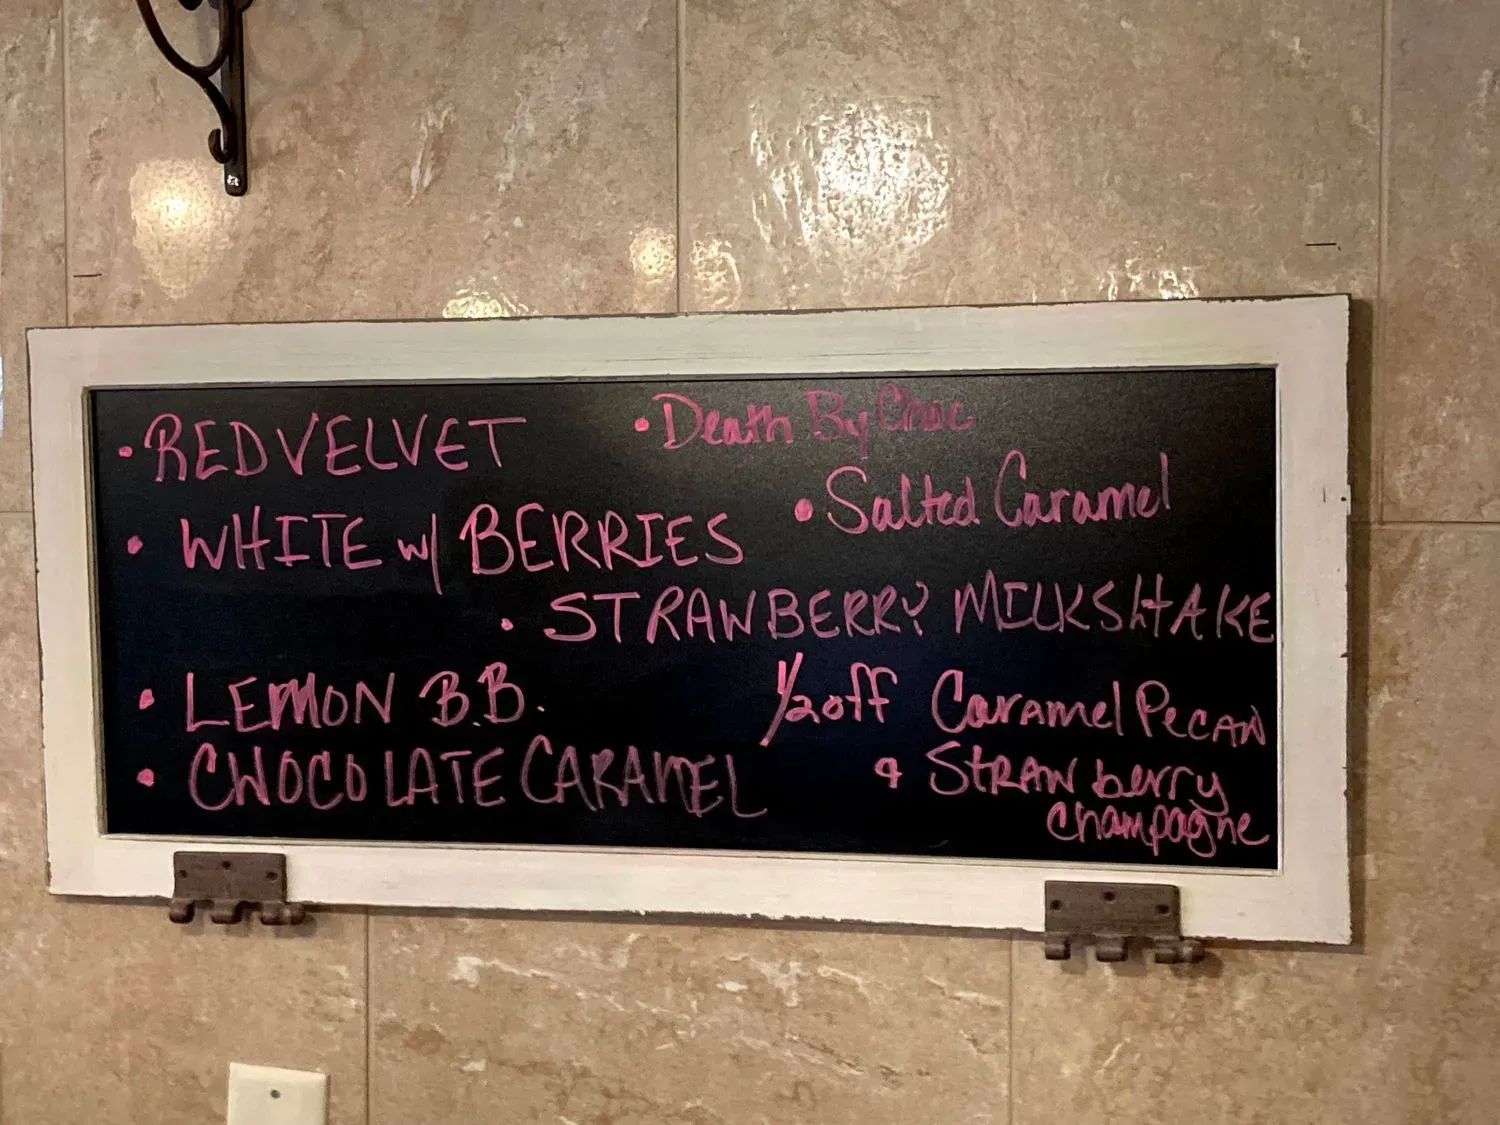 • REDVELVET
• Death By Choc
• WHITE w/ BERRIES
• Salted Caramel
• STRAWBERRY MILKSHAKE
• LEMON B.B.
• CHOCOLATE CARAMEL
1/2 off Caramel Pecan
& Strawberry
Champagne